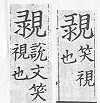 䚄
笑視
也
䚄
說文笑
視也